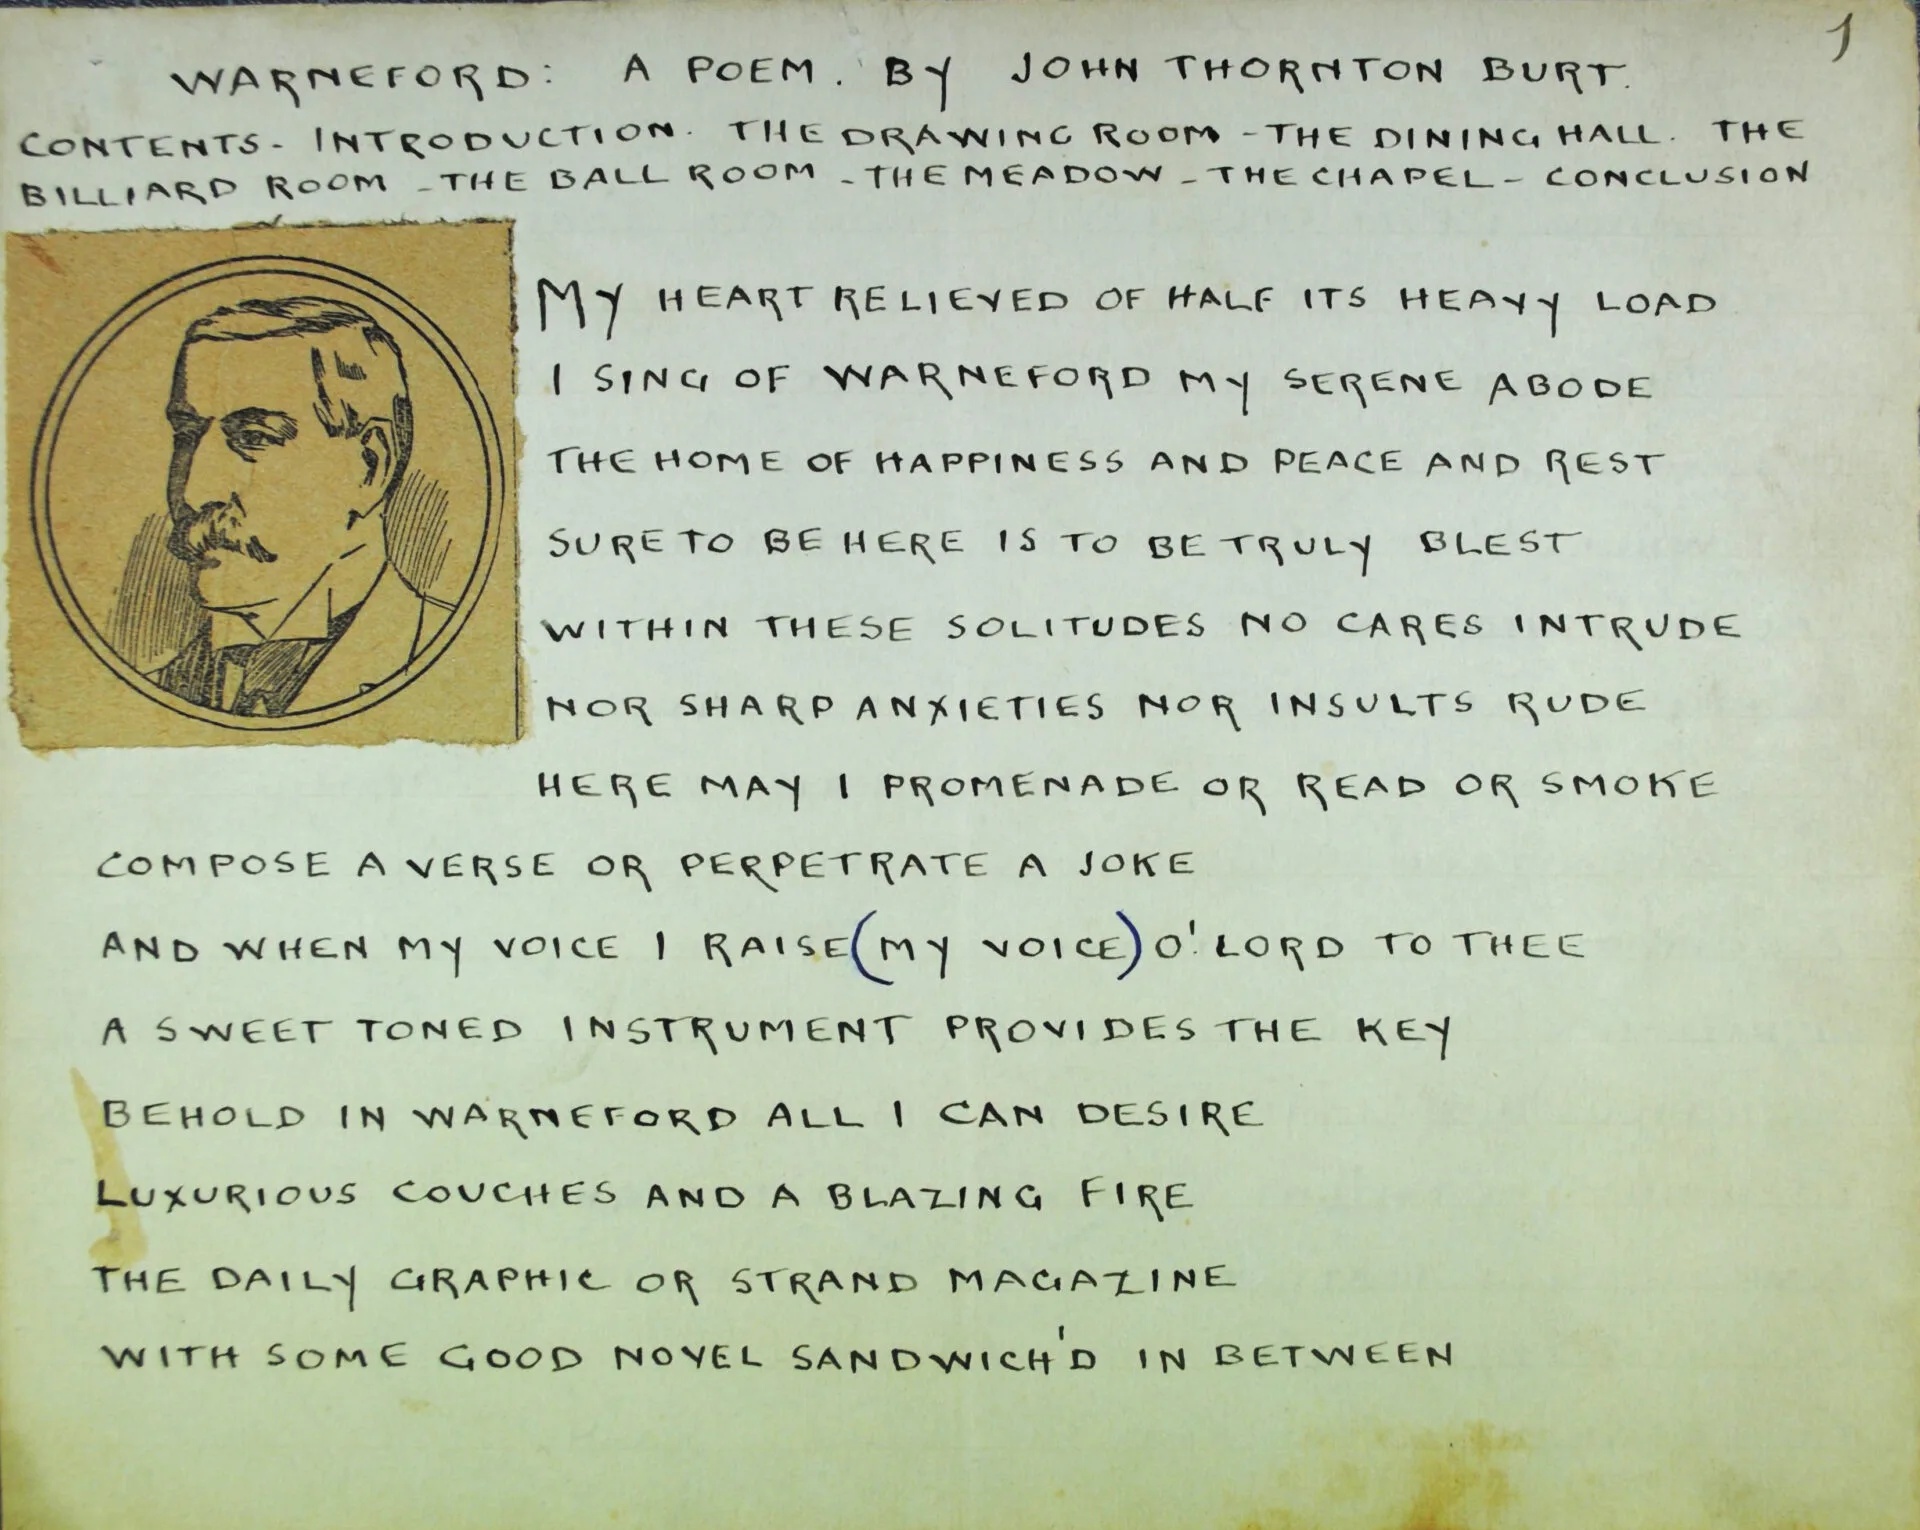 1
WARNEFORD: A POEM. BY JOHN THORNTON BURT.
CONTENTS- INTRODUCTION. THE DRAWING ROOM - THE DINING HALL. THE
BILLIARD ROOM - THE BALL ROOM - THE MEADOW - THE CHAPEL - CONCLUSION
MY HEART RELIEVED OF HALF ITS HEAVY LOAD
I SING OF WARNEFORD MY SERENE ABODE
THE HOME OF HAPPINESS AND PEACE AND REST
SURE TO BE HERE IS TO BE TRULY BLEST
WITHIN THESE SOLITUDES NO CARES INTRUDE
NOR SHARP ANXIETIES NOR INSULTS RUDE
HERE MAY I PROMENADE OR READ OR SMOKE
COMPOSE A VERSE OR PERPETRATE A JOKE
AND WHEN MY VOICE I RAISE (MY VOICE) O! LORD TO THEE
A SWEET TONED INSTRUMENT PROVIDES THE KEY
BEHOLD IN WARNEFORD ALL I CAN DESIRE
LUXURIOUS COUCHES AND A BLAZING FIRE
THE DAILY GRAPHIC OR STRAND MAGAZINE
WITH SOME GOOD NOVEL SANDWICH'D IN BETWEEN